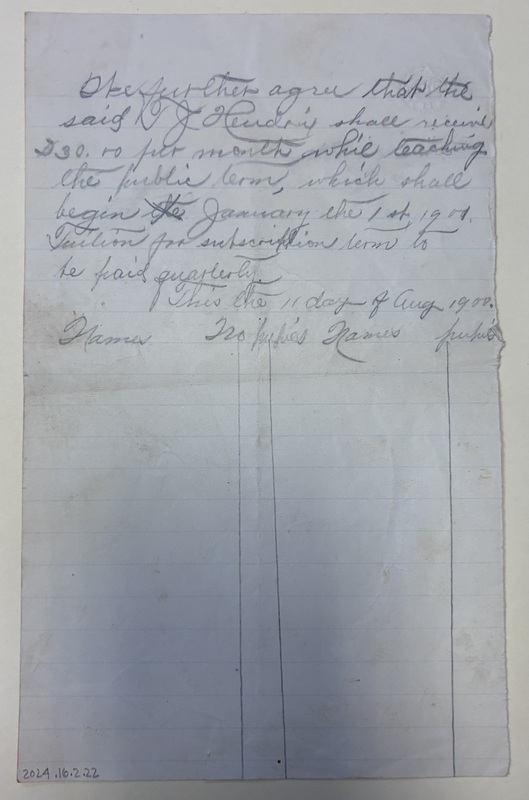 We further agree that the
said J Hendrix shall receive
$30.00 per month while teaching
the public term, which shall
begin the January the 1st, 1901.
Tuition for subscription term to
be paid quarterly.
This the 11 day of Aug 1900.
Names No pupils Names pupils
2024.16.2.22